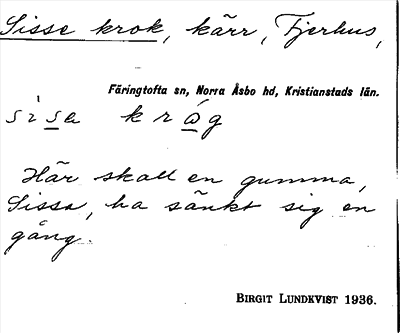 Sisse krok, kärr, Fjerhus,
Färingtofta sn, Norra Åsbo hd, Kristianstads län.
sisa kråg
Här skall en gumma,
Sissa, ha sänkt sig en
gång.
BIRGIT LUNDKVIST 1936.